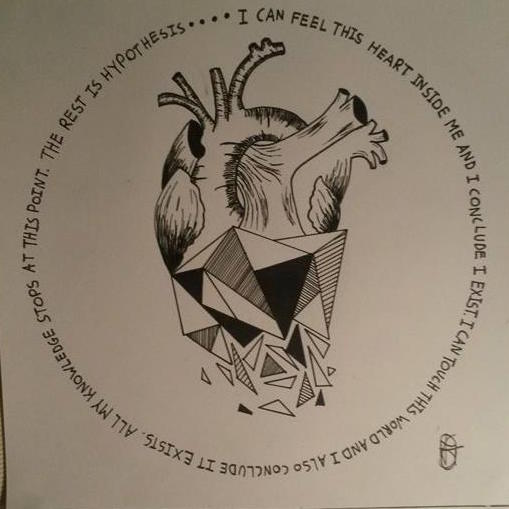 I CAN FEEL THIS HEART INSIDE ME AND I CONCLUDE I EXIST. I CAN TOUCH THIS WORLD AND I ALSO CONCLUDE IT EXISTS. ALL MY KNOWLEDGE STOPS AT THIS POINT. THE REST IS HYPOTHESIS....